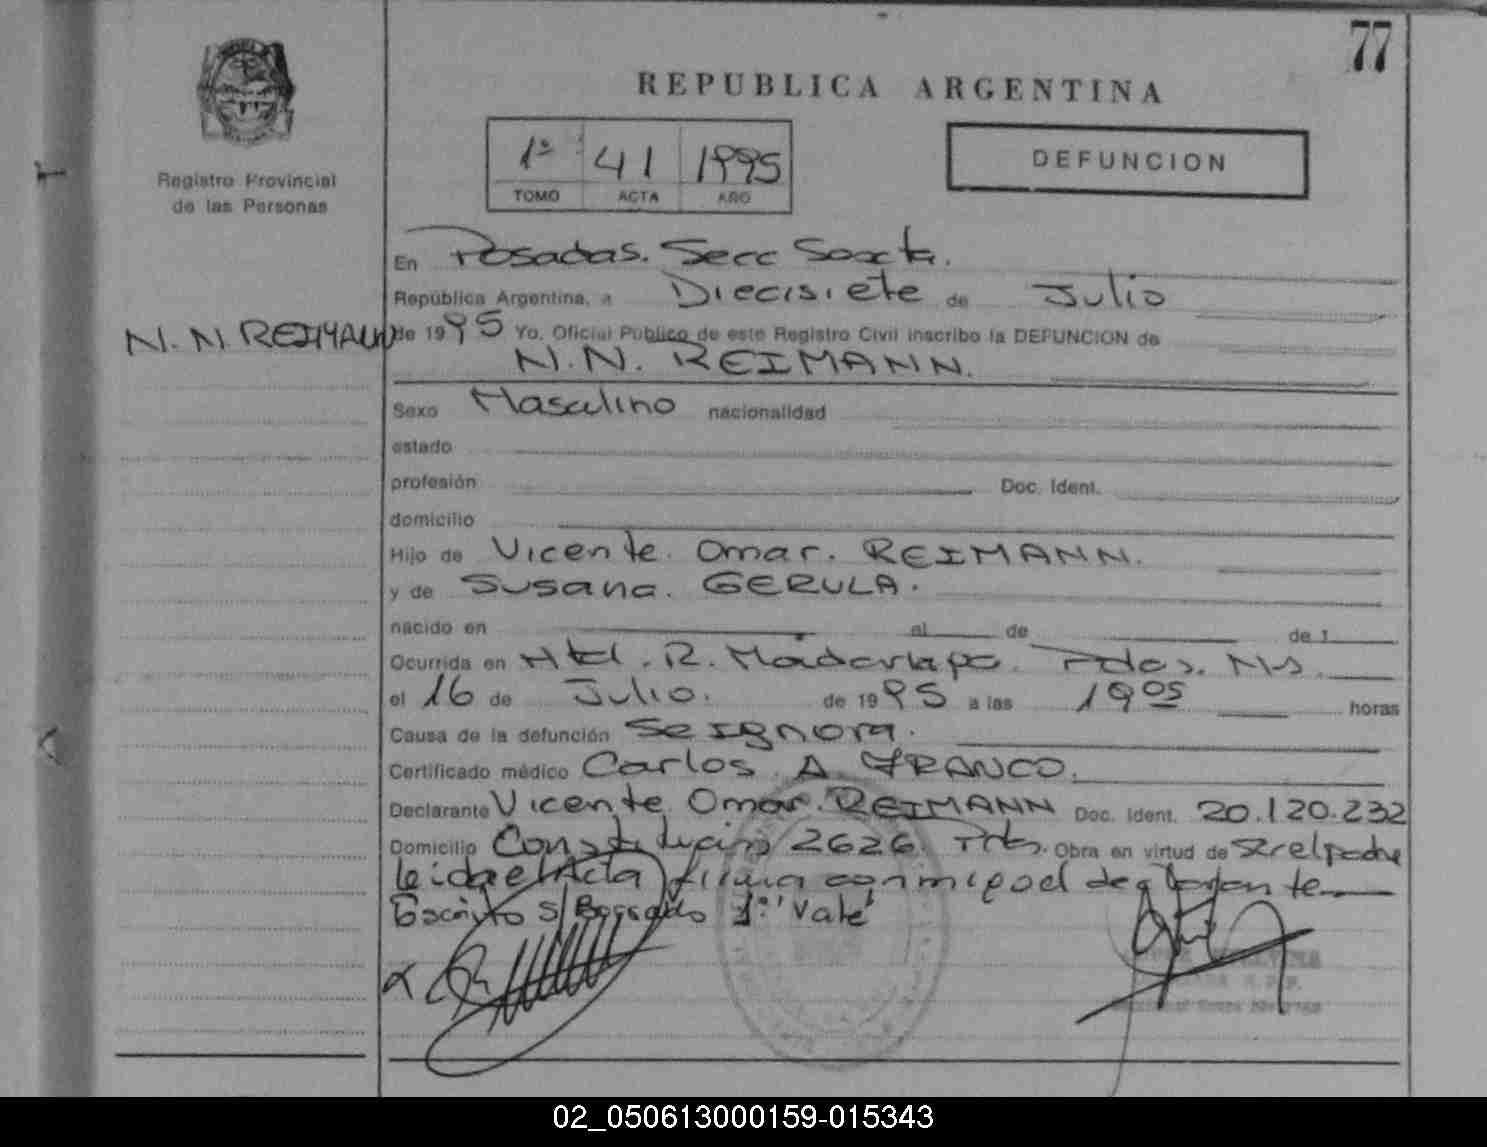 77
REPUBLICA ARGENTINA
1º 41 1995
TOMO ACTA AÑO
DEFUNCION
Registro Provincial
de las Personas
En Posadas. Secc Sexta.
República Argentina, a Diecisiete de Julio
N. N. REIMANN
de 1995 Yo, Oficial Público de este Registro Civil inscribo la DEFUNCION de
N. N. REIMANN.
Sexo Masculino nacionalidad
estado
profesión Doc. Ident.
domicilio
Hijo de Vicente Omar. REIMANN.
y de Susana. GERULA.
nacido en el de de 1
Ocurrida en Htal. R. Madariaga. Pdas. Ms.
el 16 de Julio. de 1995 a las 19 05 horas
Causa de la defunción Se Ignora.
Certificado médico Carlos A FRANCO.
Declarante Vicente Omar. REIMANN Doc. Ident. 20.120.232
Domicilio Constitución 2626. Pdas. Obra en virtud de Ser el padre
leida el Acta firma conmigo el declarante
Escrito s/ Borrado 1º "Vale"
02_050613000159-015343